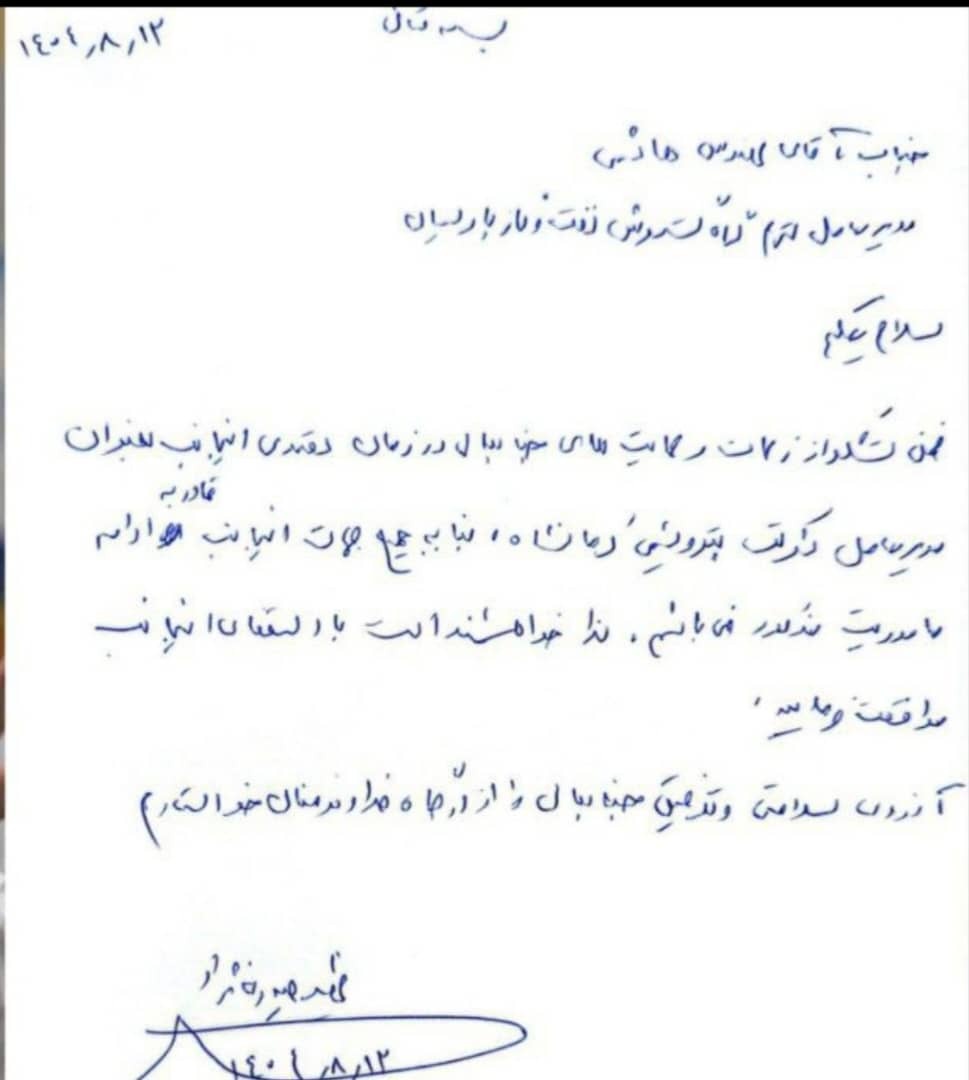 بسمه تعالی
۱۴۰۴،۸،۱۲
جناب آقای مهندس هاشمی
مدیرعامل محترم گروه گسترش نفت و گاز پارسیان
سلام علیکم
ضمن تشکر از زحمات و حمایت های جنابعالی در زمان تصدی اینجانب بعنوان
مدیرعامل شرکت پتروشیمی کرمانشاه، بنا به جمیع جهات اینجانب قادر به ادامه
ماموریت مذکور نمی باشم. لذا خواهشمند است با استعفای اینجانب
موافقت فرمایید.
آرزوی سلامتی و توفیق جنابعالی را از درگاه خداوند منان خواستارم
۱۴۰۴،۸،۱۲